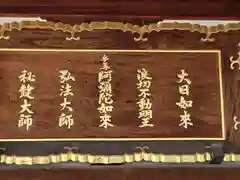 大日如來
浪切不動明王
本尊
阿彌陀如來
弘法大師
秘鍵大師